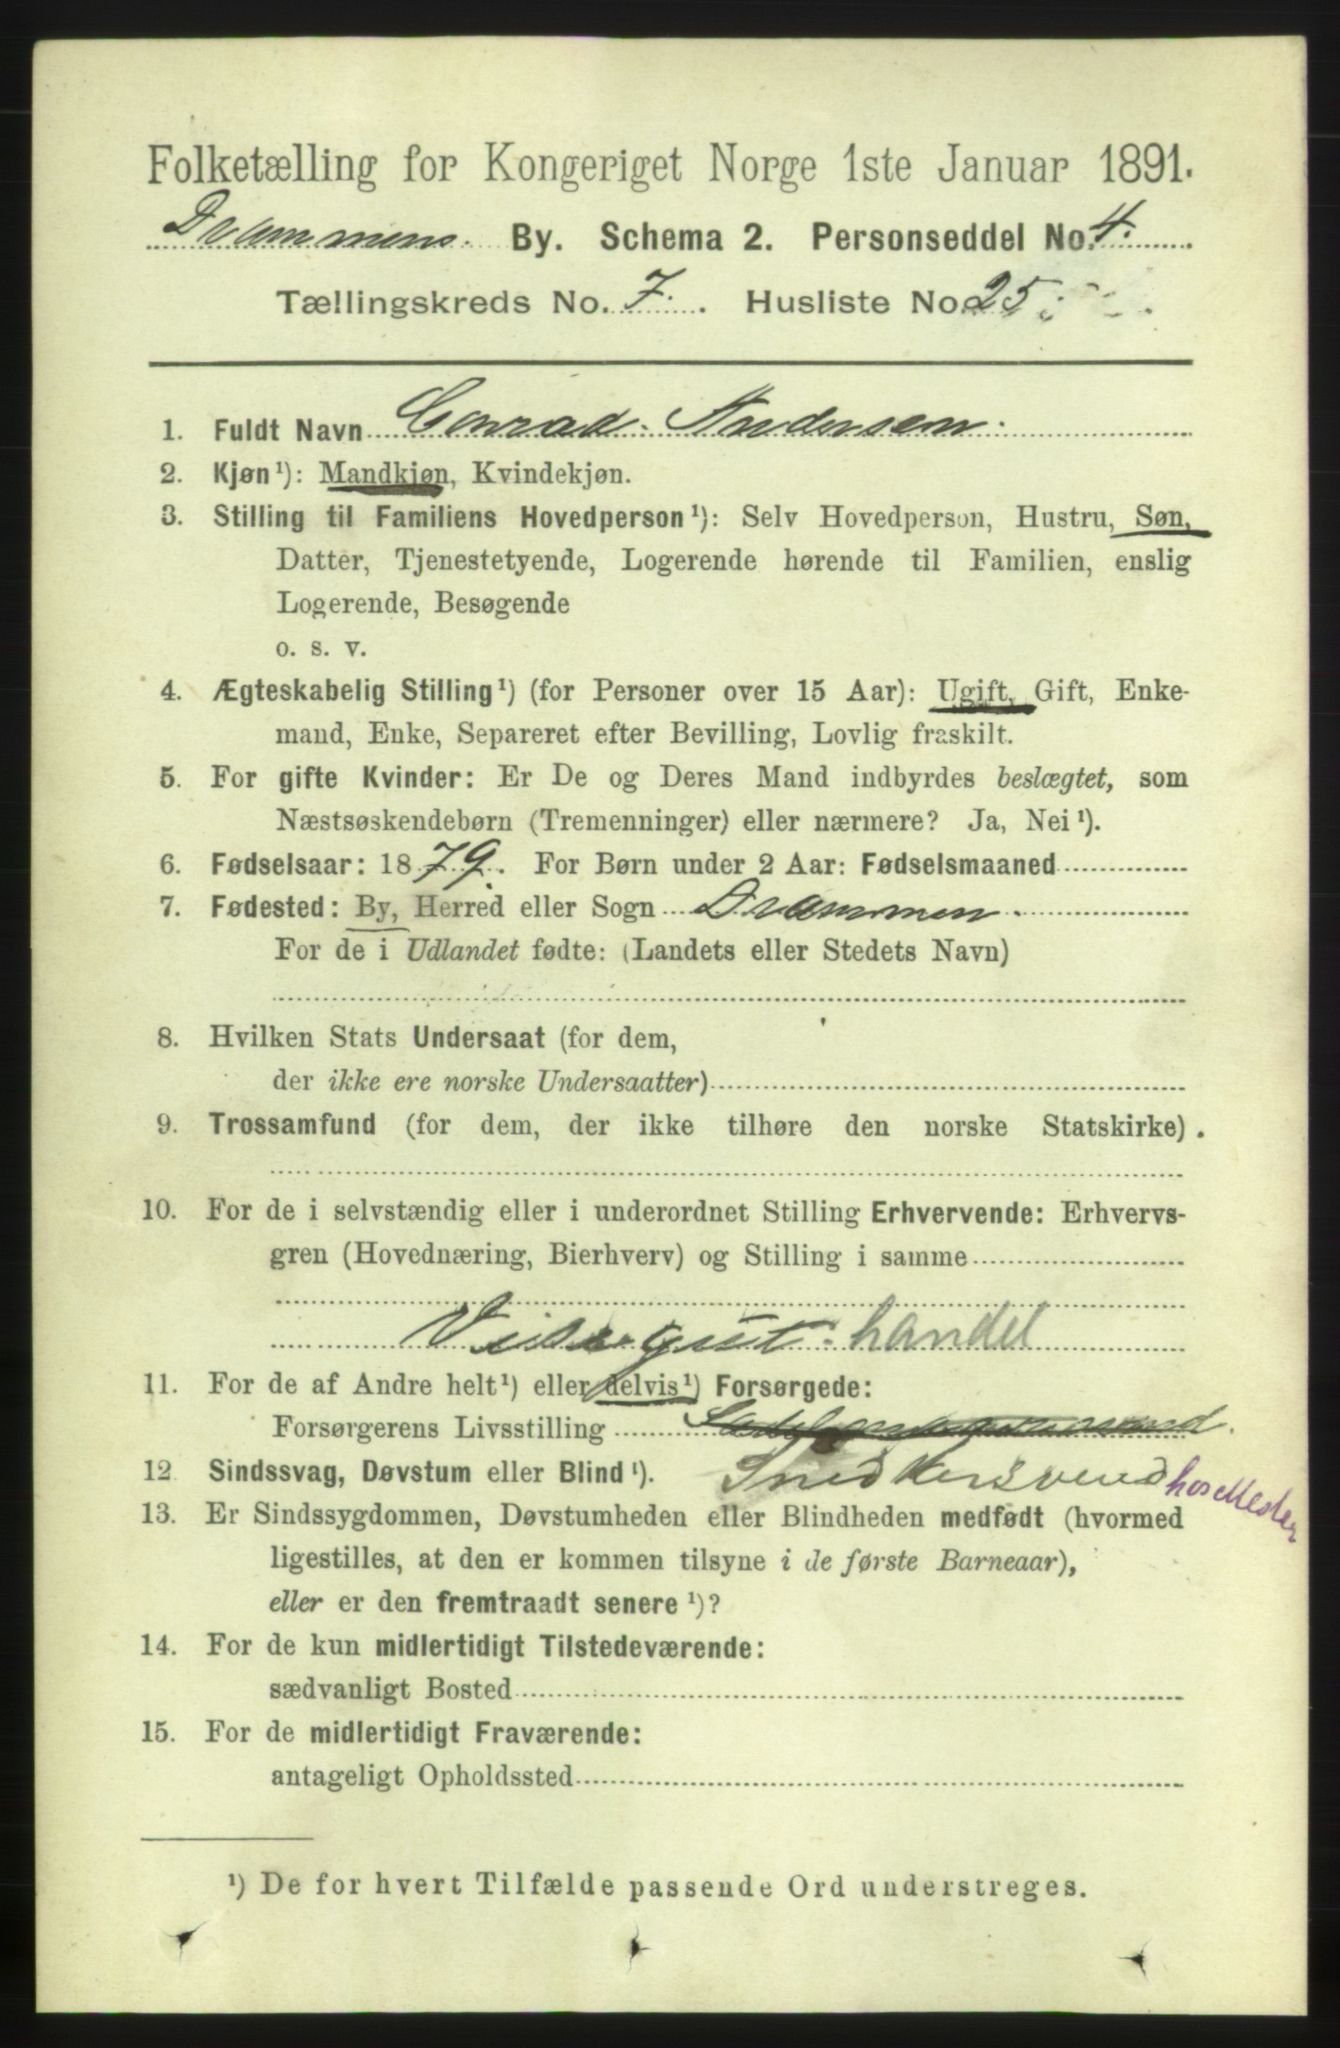 Folketælling for Kongeriget Norge 1ste Januar 1891.
Drammens By. Schema 2. Personseddel No. 4.
Tællingskreds No. 7. Husliste No. 25.
1. Fuldt Navn Conrad Andersen.
2. Kjøn¹): Mandkjøn, Kvindekjøn.
3. Stilling til Familiens Hovedperson¹): Selv Hovedperson, Hustru, Søn,
Datter, Tjenestetyende, Logerende hørende til Familien, enslig
Logerende, Besøgende
o. s. v.
4. Ægteskabelig Stilling¹) (for Personer over 15 Aar): Ugift, Gift, Enke-
mand, Enke, Separeret efter Bevilling, Lovlig fraskilt.
5. For gifte Kvinder: Er De og Deres Mand indbyrdes beslægtet, som
Næstsøskendebørn (Tremenninger) eller nærmere? Ja, Nei¹).
6. Fødselsaar: 1879. For Børn under 2 Aar: Fødselsmaaned
7. Fødested: By, Herred eller Sogn Drammen.
For de i Udlandet fødte: (Landets eller Stedets Navn)
8. Hvilken Stats Undersaat (for dem,
der ikke ere norske Undersaatter)
9. Trossamfund (for dem, der ikke tilhøre den norske Statskirke).
10. For de i selvstændig eller i underordnet Stilling Erhvervende: Erhvervs-
gren (Hovednæring, Bierhverv) og Stilling i samme
Visergut. handel
11. For de af Andre helt¹) eller delvis¹) Forsørgede:
Forsørgerens Livsstilling
12 Sindssvag, Døvstum eller Blind¹). Snedkersvend hos Mester
13. Er Sindssygdommen, Døvstumheden eller Blindheden medfødt (hvormed
ligestilles, at den er kommen tilsyne i de første Barneaar),
eller er den fremtraadt senere¹)?
14. For de kun midlertidigt Tilstedeværende:
sædvanligt Bosted
15. For de midlertidigt Fraværende:
antageligt Opholdssted
¹) De for hvert Tilfælde passende Ord understreges.